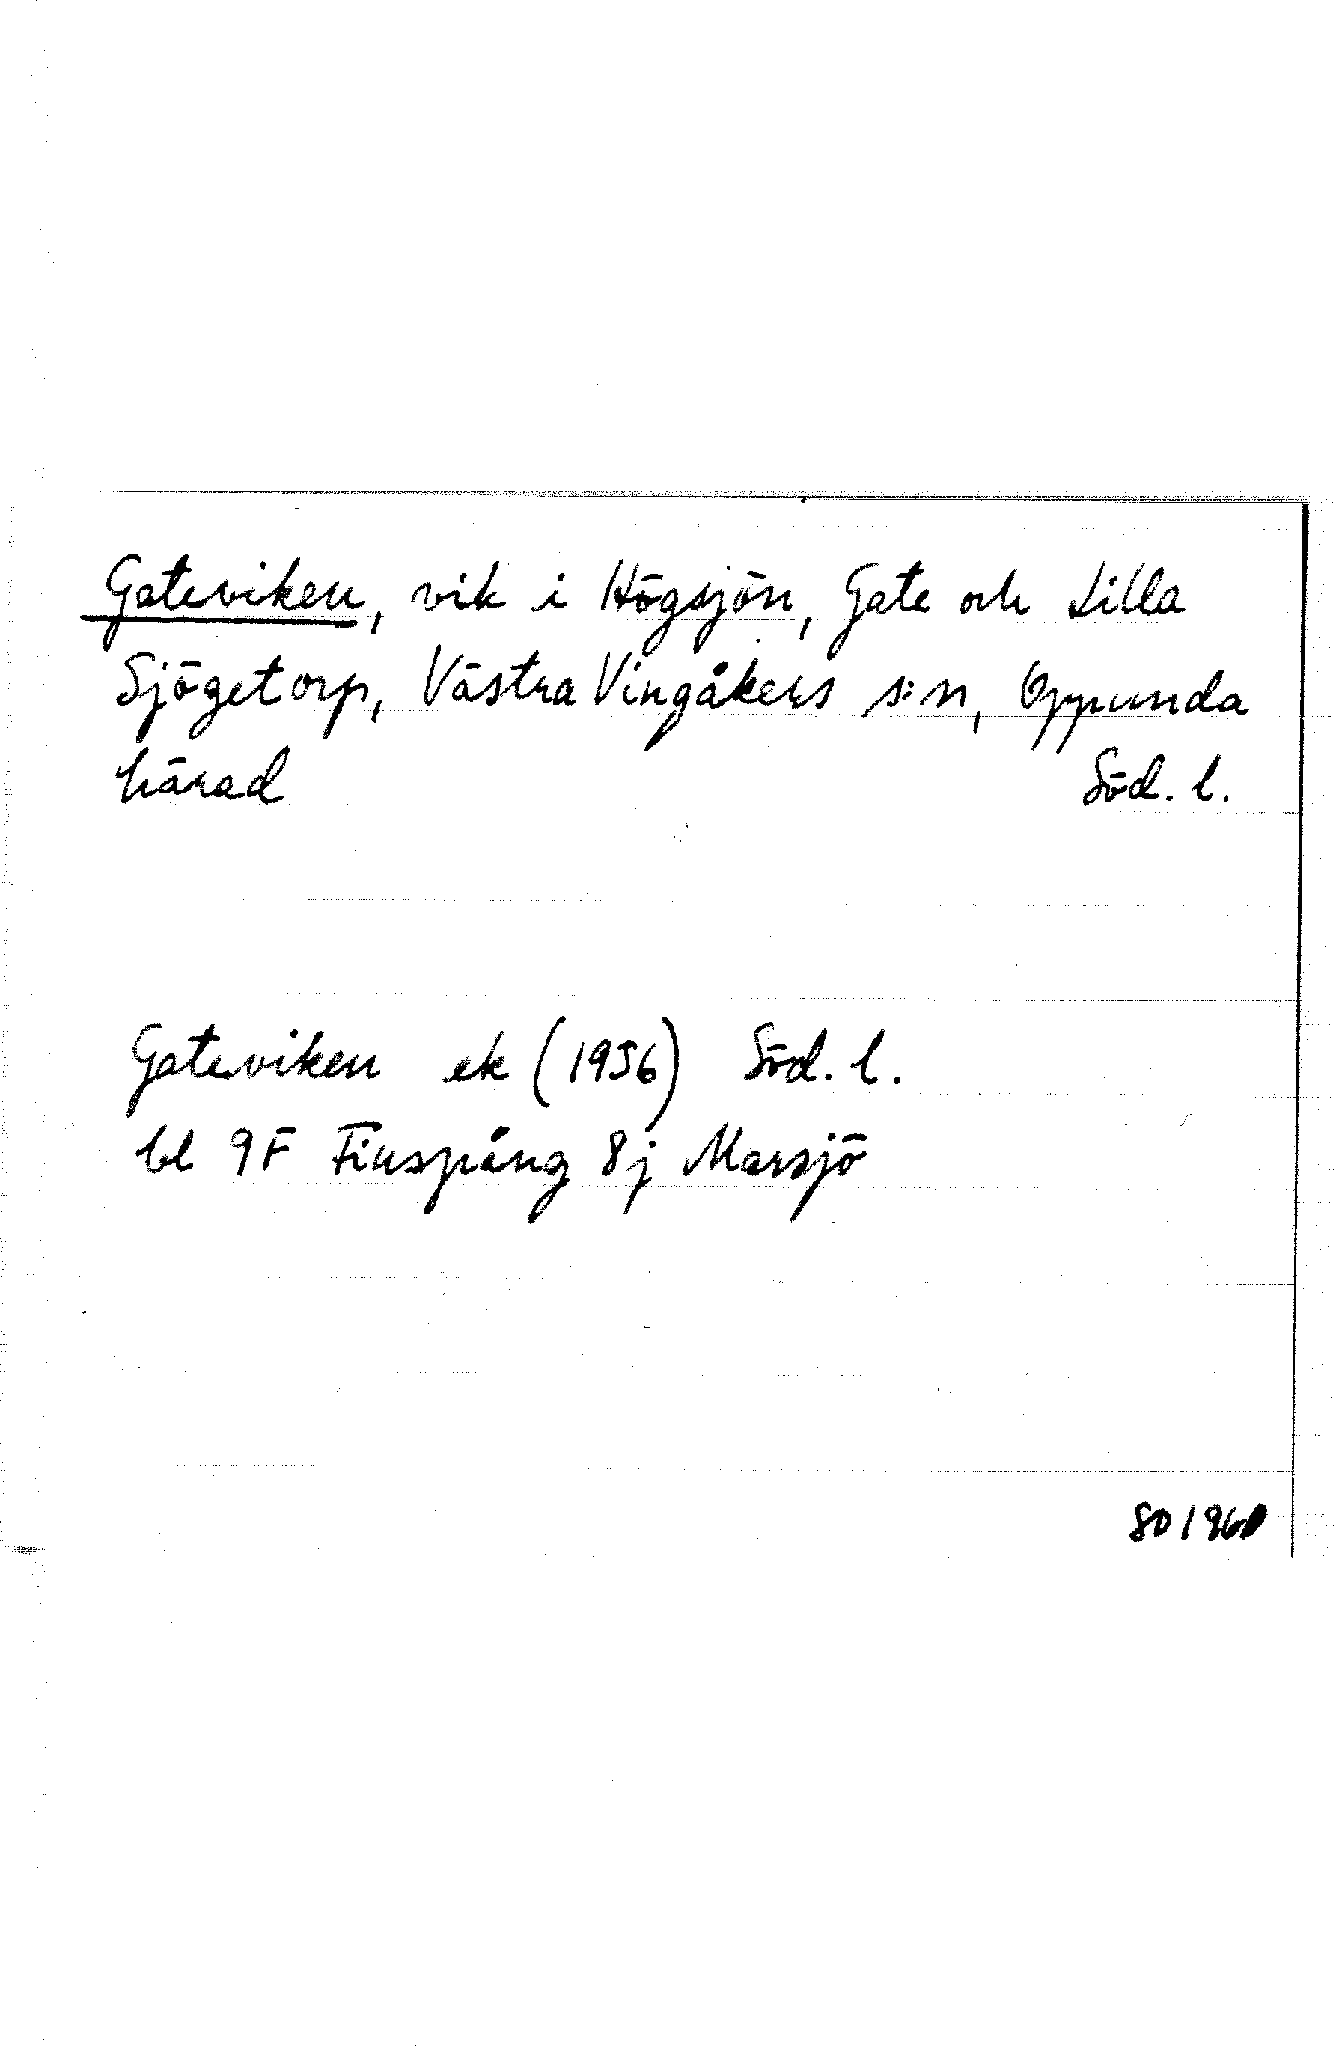 Gateviken, vik i Högsjön, Gate och Lilla
Sjögetorp, Västra Vingåkers s:n, Oppunda
härad Söd. l.
Gateviken ek (1956) Söd. l.
bl 9F Finspång 8j Marsjö